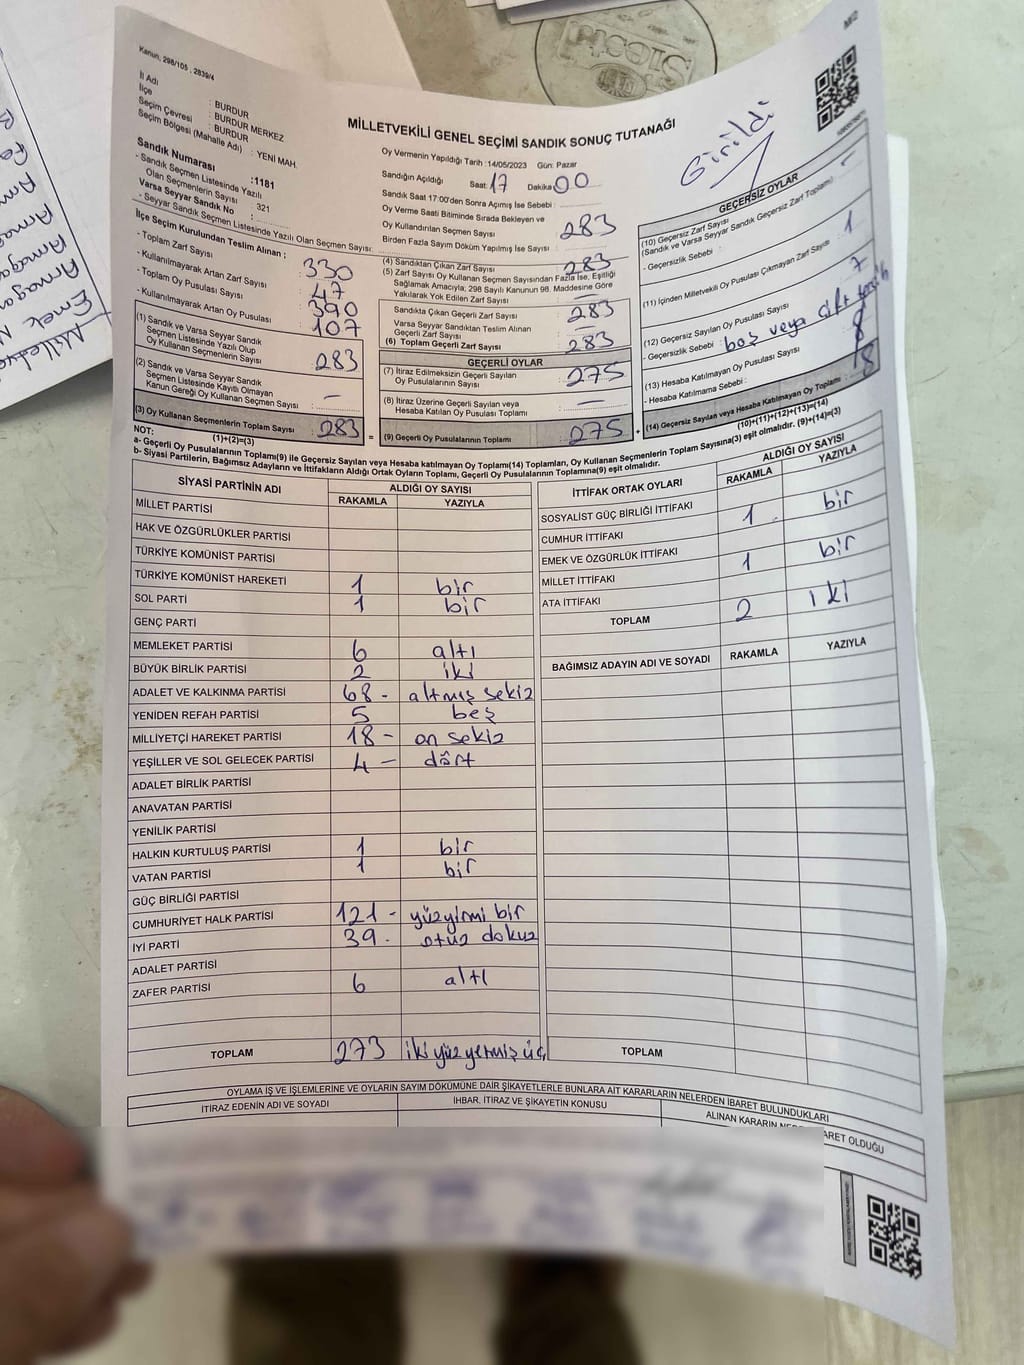 Kanun, 298/105 ; 2839/4
M/2
İl Adı : BURDUR
İlçe : BURDUR MERKEZ
Seçim Çevresi : BURDUR
Seçim Bölgesi (Mahalle Adı) : YENİ MAH.
Sandık Numarası :1181
- Sandık Seçmen Listesinde Yazılı Olan Seçmenlerin Sayısı : 321
Varsa Seyyar Sandık No :
- Seyyar Sandık Seçmen Listesinde Yazılı Olan Seçmen Sayısı:
MİLLETVEKİLİ GENEL SEÇİMİ SANDIK SONUÇ TUTANAĞI
Girildi
Oy Vermenin Yapıldığı Tarih :14/05/2023 Gün: Pazar
Sandığın Açıldığı Saat: 17 Dakika: 00
Sandık Saat 17:00'den Sonra Açımış İse Sebebi :
Oy Verme Saati Bitiminde Sırada Bekleyen ve
Oy Kullandırılan Seçmen Sayısı : 283
Birden Fazla Sayım Döküm Yapılmış İse Sayısı :
İlçe Seçim Kurulundan Teslim Alınan ;
- Toplam Zarf Sayısı : 330
- Kullanılmayarak Artan Zarf Sayısı : 47
- Toplam Oy Pusulası Sayısı : 390
- Kullanılmayarak Artan Oy Pusulası : 107
(1) Sandık ve Varsa Seyyar Sandık
Seçmen Listesinde Yazılı Olup
Oy Kullanan Seçmenlerin Sayısı : 283
(2) Sandık ve Varsa Seyyar Sandık
Seçmen Listesinde Kayıtlı Olmayan
Kanun Gereği Oy Kullanan Seçmen Sayısı : —
(3) Oy Kullanan Seçmenlerin Toplam Sayısı : 283
(1)+(2)=(3)
(4) Sandıktan Çıkan Zarf Sayısı : 283
(5) Zarf Sayısı Oy Kullanan Seçmen Sayısından Fazla İse, Eşitliği
Sağlamak Amacıyla; 298 Sayılı Kanunun 98. Maddesine Göre
Yakılarak Yok Edilen Zarf Sayısı : —
Sandıkta Çıkan Geçerli Zarf Sayısı : 283
Varsa Seyyar Sandıktan Teslim Alınan
Geçerli Zarf Sayısı : —
(6) Toplam Geçerli Zarf Sayısı : 283
GEÇERLİ OYLAR
(7) İtiraz Edilmeksizin Geçerli Sayılan
Oy Pusulalarının Sayısı : 275
(8) İtiraz Üzerine Geçerli Sayılan veya
Hesaba Katılan Oy Pusulası Toplamı : —
= (9) Geçerli Oy Pusulalarının Toplamı : 275 +
GEÇERSİZ OYLAR
(10) Geçersiz Zarf Sayısı
(Sandık ve Varsa Seyyar Sandık Geçersiz Zarf Toplamı) : —
- Geçersizlik Sebebi :
(11) İçinden Milletvekili Oy Pusulası Çıkmayan Zarf Sayısı : 1
(12) Geçersiz Sayılan Oy Pusulası Sayısı : 7
- Geçersizlik Sebebi : boş veya çift
(13) Hesaba Katılmayan Oy Pusulası Sayısı
- Hesaba Katılmama Sebebi :
(14) Geçersiz Sayılan veya Hesaba Katılmayan Oy Toplamı : 8
(10)+(11)+(12)+(13)=(14)
NOT:
a- Geçerli Oy Pusulalarının Toplamı(9) ile Geçersiz Sayılan veya Hesaba katılmayan Oy Toplamı(14) Toplamları, Oy Kullanan Seçmenlerin Toplam Sayısına(3) eşit olmalıdır. (9)+(14)=(3)
b- Siyasi Partilerin, Bağımsız Adayların ve İttifakların Aldığı Ortak Oyların Toplamı, Geçerli Oy Pusulalarının Toplamına(9) eşit olmalıdır.
SİYASİ PARTİNİN ADI ALDIĞI OY SAYISI
RAKAMLA YAZIYLA
MİLLET PARTİSİ
HAK VE ÖZGÜRLÜKLER PARTİSİ
TÜRKİYE KOMÜNİST PARTİSİ
TÜRKİYE KOMÜNİST HAREKETİ 1 bir
SOL PARTİ 1 bir
GENÇ PARTİ
MEMLEKET PARTİSİ 6 altı
BÜYÜK BİRLİK PARTİSİ 2 iki
ADALET VE KALKINMA PARTİSİ 68 - altmış sekiz
YENİDEN REFAH PARTİSİ 5 beş
MİLLİYETÇİ HAREKET PARTİSİ 18 - on sekiz
YEŞİLLER VE SOL GELECEK PARTİSİ 4 - dört
ADALET BİRLİK PARTİSİ
ANAVATAN PARTİSİ
YENİLİK PARTİSİ
HALKIN KURTULUŞ PARTİSİ 1 bir
VATAN PARTİSİ 1 bir
GÜÇ BİRLİĞİ PARTİSİ
CUMHURİYET HALK PARTİSİ 121 - yüzyirmi bir
İYİ PARTİ 39 - otuz dokuz
ADALET PARTİSİ
ZAFER PARTİSİ 6 altı
TOPLAM 273 ikiyüzyetmiş üç
İTTİFAK ORTAK OYLARI ALDIĞI OY SAYISI
RAKAMLA YAZIYLA
SOSYALİST GÜÇ BİRLİĞİ İTTİFAKI
CUMHUR İTTİFAKI 1 - bir
EMEK VE ÖZGÜRLÜK İTTİFAKI
MİLLET İTTİFAKI 1 bir
ATA İTTİFAKI
TOPLAM 2 iki
BAĞIMSIZ ADAYIN ADI VE SOYADI RAKAMLA YAZIYLA
TOPLAM
OYLAMA İŞ VE İŞLEMLERİNE VE OYLARIN SAYIM DÖKÜMÜNE DAİR ŞİKAYETLERLE BUNLARA AİT KARARLARIN NELERDEN İBARET BULUNDUKLARI
İTİRAZ EDENİN ADI VE SOYADI
İHBAR, İTİRAZ VE ŞİKAYETİN KONUSU
ALINAN KARARIN